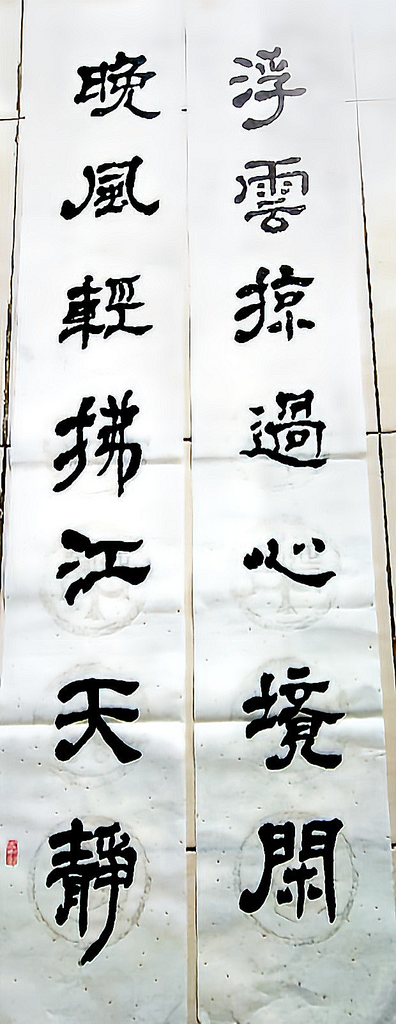 浮雲掠過心境閑
晚風輕拂江天靜